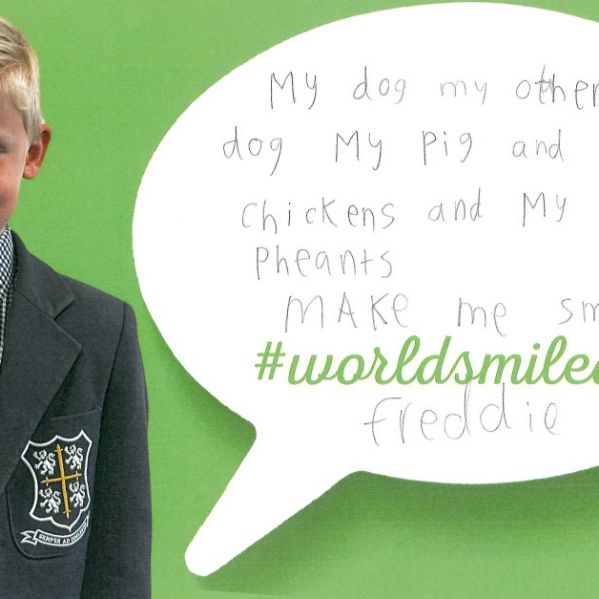 My dog my other
dog My pig and
chickens and My
Pheants
MAKe me sm
#worldsmiled
freddie
SEMPER AD